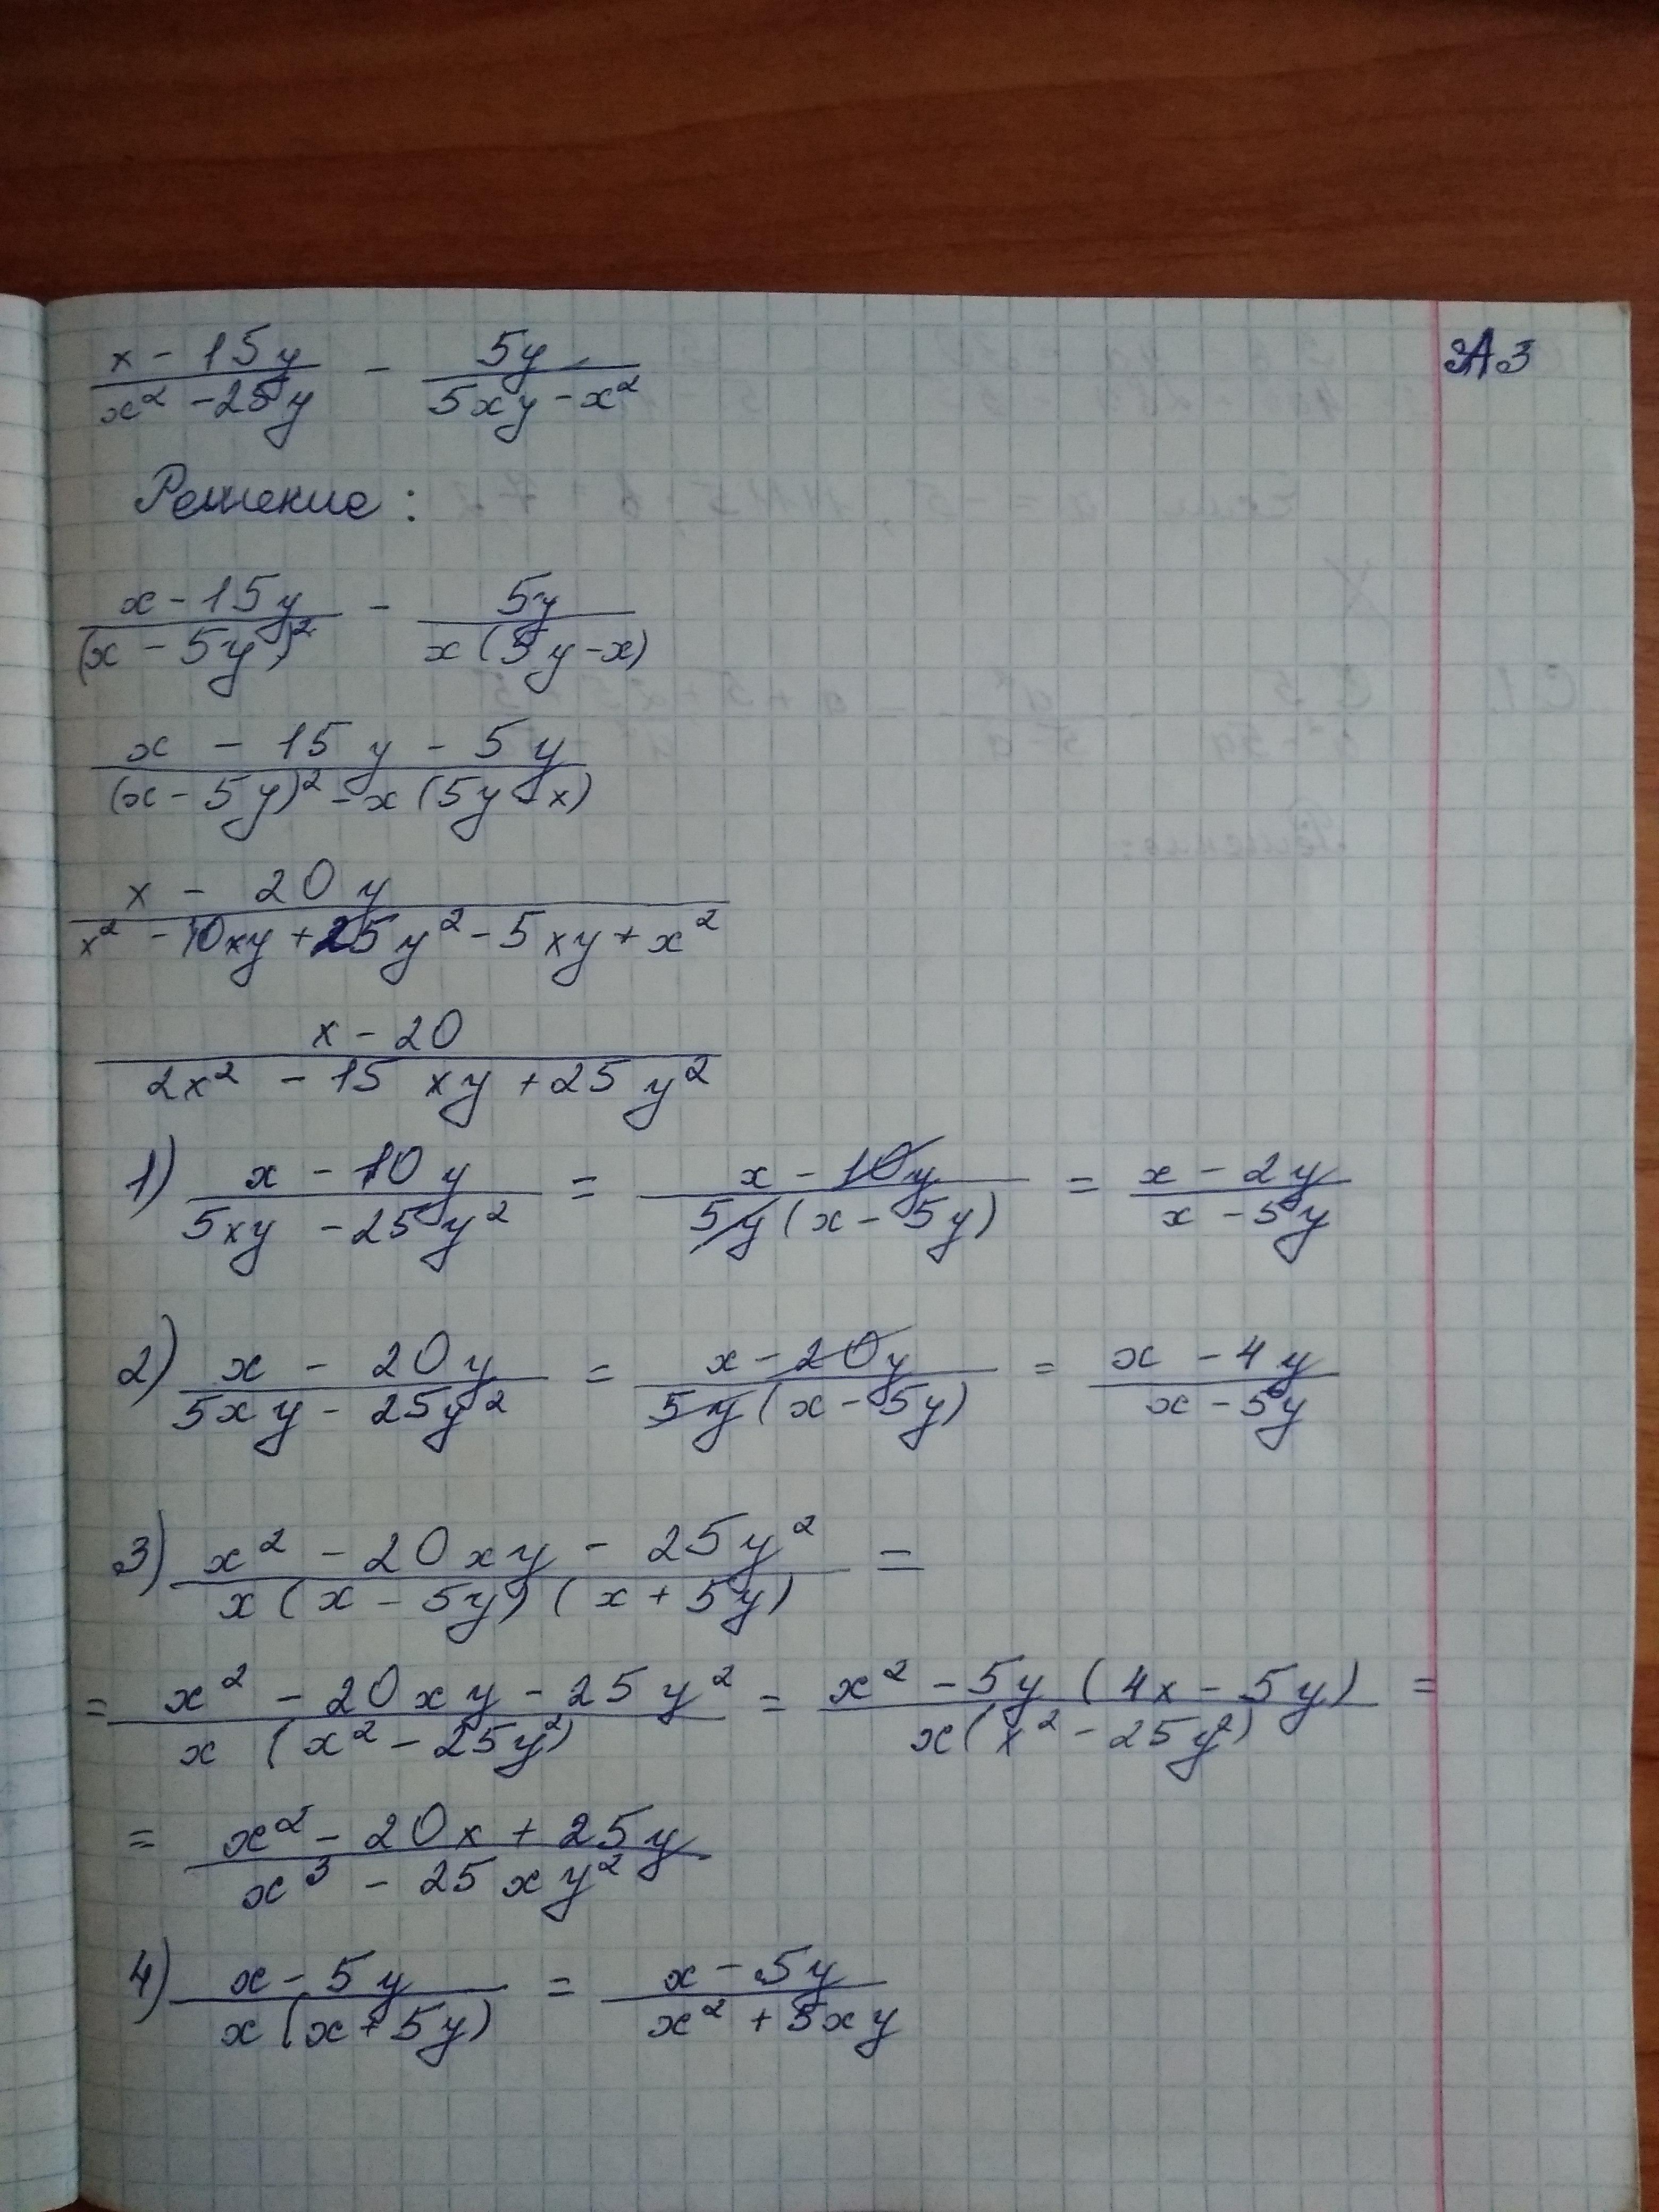 А3
x - 15y / x² - 25y - 5y / 5xy - x²
Решение:
x - 15y / (x - 5y)² - 5y / x(5y - x)
x - 15y - 5y / (x - 5y)² - x(5y - x)
x - 20y / x² - 10xy + 25y² - 5xy + x²
x - 20 / 2x² - 15xy + 25y²
1) x - 10y / 5xy - 25y² = x - 10y / 5y(x - 5y) = x - 2y / x - 5y
2) x - 20y / 5xy - 25y² = x - 20y / 5y(x - 5y) = x - 4y / x - 5y
3) x² - 20xy - 25y² / x(x - 5y)(x + 5y) =
= x² - 20xy - 25y² / x(x² - 25y²) = x² - 5y(4x - 5y) / x(x² - 25y²) =
= x² - 20x + 25y / x³ - 25xy²
4) x - 5y / x(x + 5y) = x - 5y / x² + 5xy